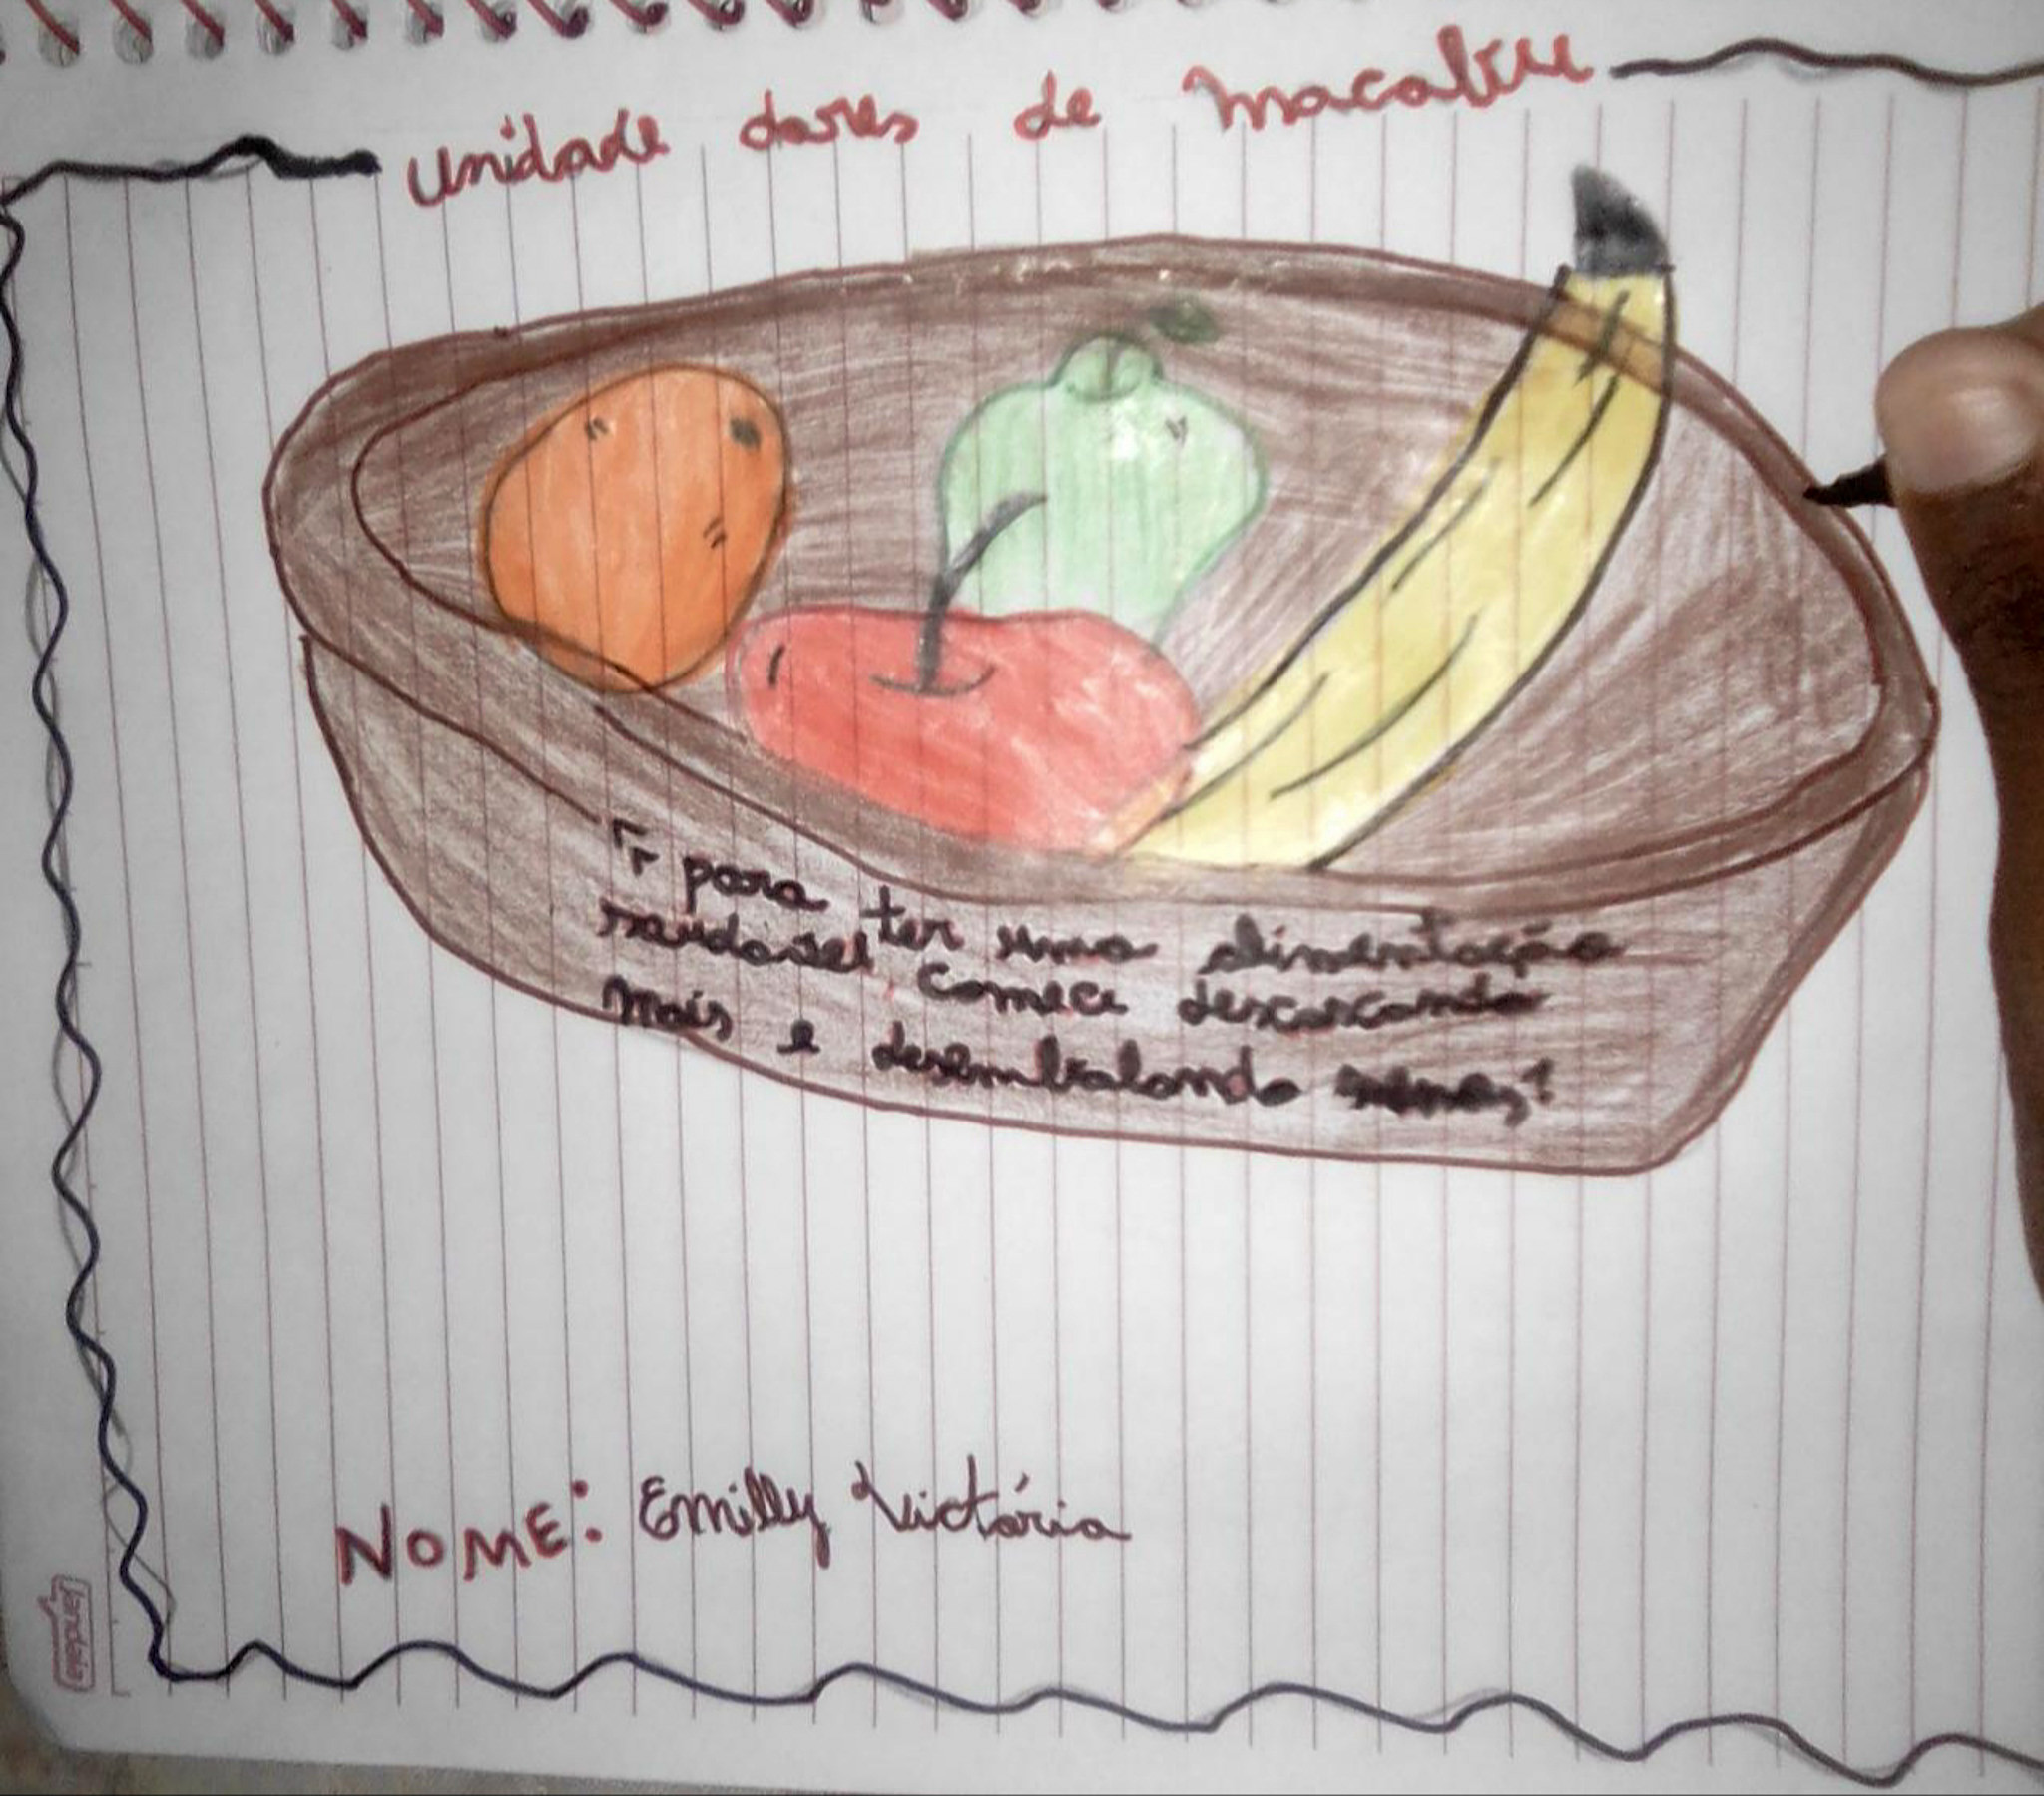 unidade dores de macabu
" para ter uma alimentação
saudavel, comece descascando
mais e desembalando menos!
NOME: Emilly Victória
Jandaia